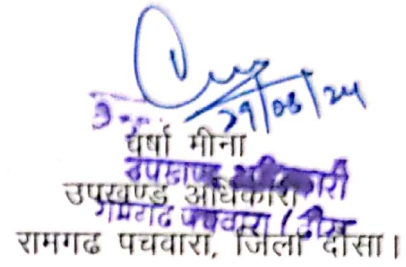 29/08/24
वर्षा मीना
उपखण्ड अधिकारी
उपखण्ड अधिकारी
रामगढ पचवारा (दौसा
रामगढ पचवारा, जिला दौसा।